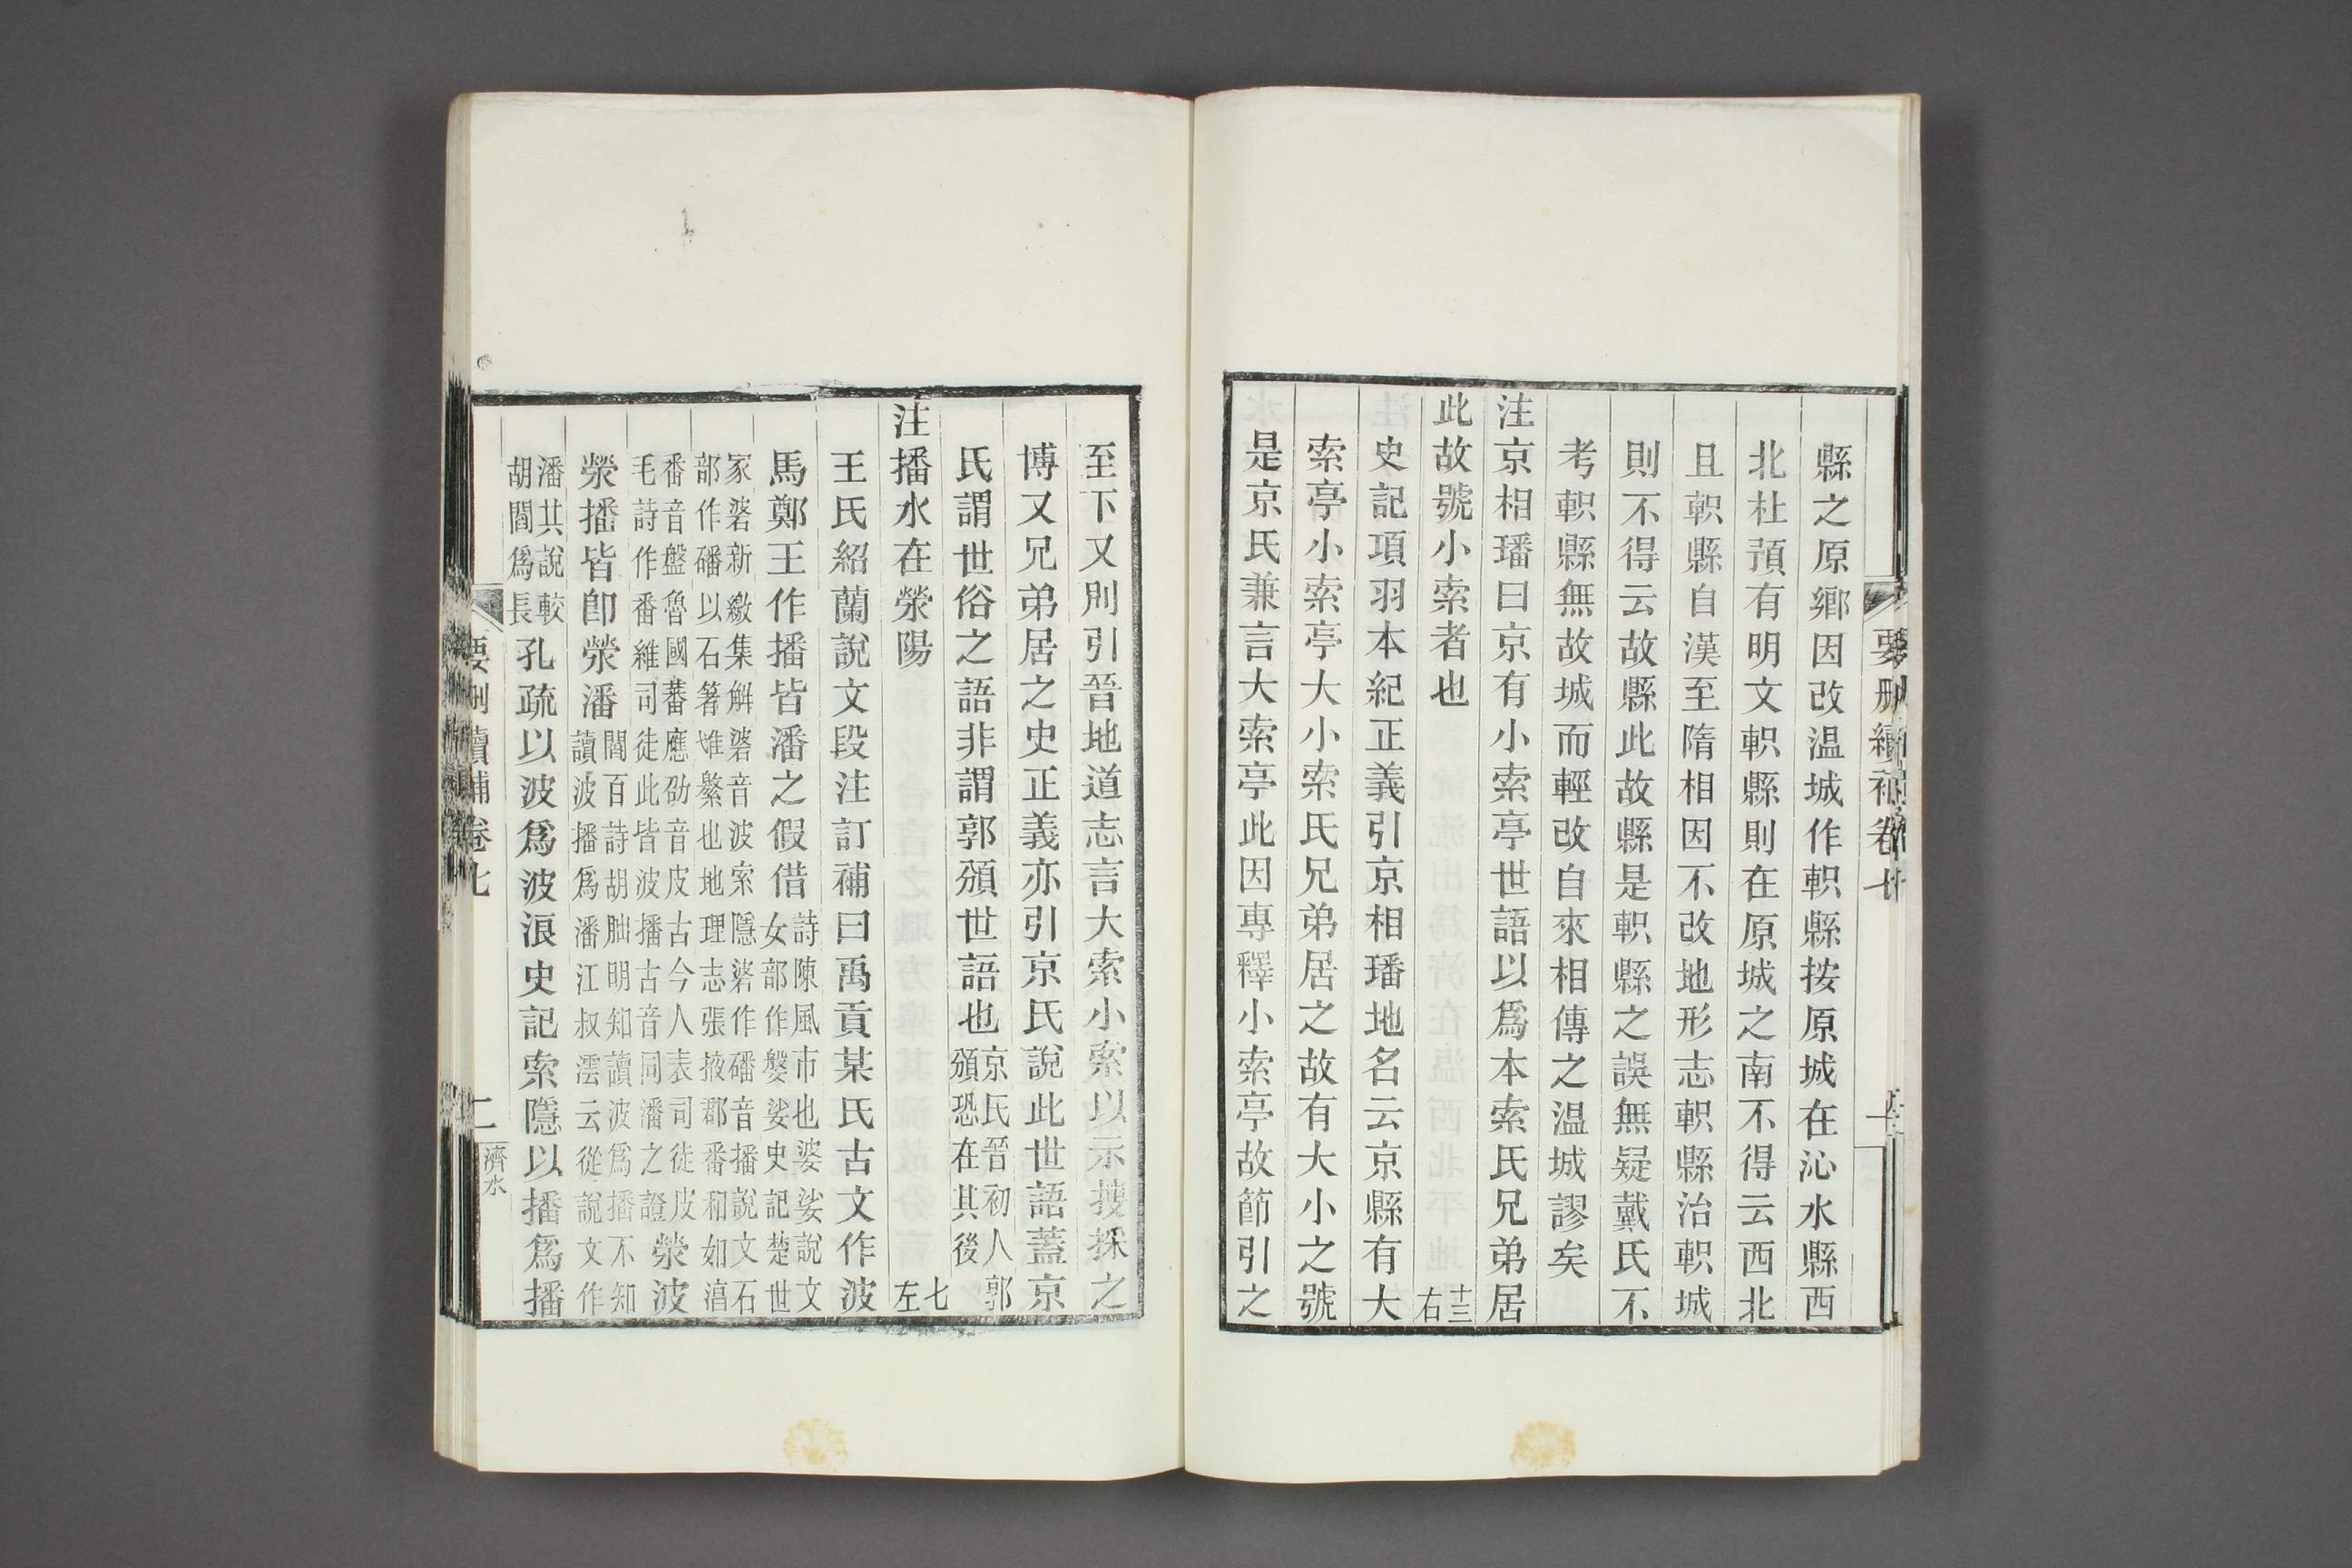 縣之原鄉因改温城作軹縣按原城在沁水縣西
北杜預有明文軹縣則在原城之南不得云西北
且軹縣自漢至隋相因不改地形志軹縣治軹城
則不得云故縣此故縣是軹縣之誤無疑戴氏不
考軹縣無故城而輕改自來相傳之温城謬矣
注京相璠曰京有小索亭世語以爲本索氏兄弟居
此故號小索者也 十三右
史記項羽本紀正義引京相璠地名云京縣有大
索亭小索亭大小索氏兄弟居之故有大小之號
是京氏兼言大索亭此因專釋小索亭故節引之
至下又則引晉地道志言大索小索以示搜採之
博又兄弟居之史正義亦引京氏說此世語蓋京
氏謂世俗之語非謂郭頒世語也京氏晉初人郭頒恐在其後
注播水在滎陽 七左
王氏紹蘭說文段注訂補曰禹貢某氏古文作波
馬鄭王作播皆潘之假借詩陳風市也婆娑說文女部作媻娑史記楚世
家碆新繳集解碆音波索隱碆作磻音播說文石部作磻以石箸隿繁也地理志張掖郡番和如淳
番音盤魯國蕃應劭音皮古今人表司徒皮毛詩作番維司徒此皆波播古音同潘之證滎波
滎播皆卽滎潘閻百詩胡朏明知讀波爲播不知讀波播爲潘江叔澐云從說文作
潘其說較胡閻爲長孔疏以波爲波浪史記索隱以播爲播
要刪續補卷七
二
濟水